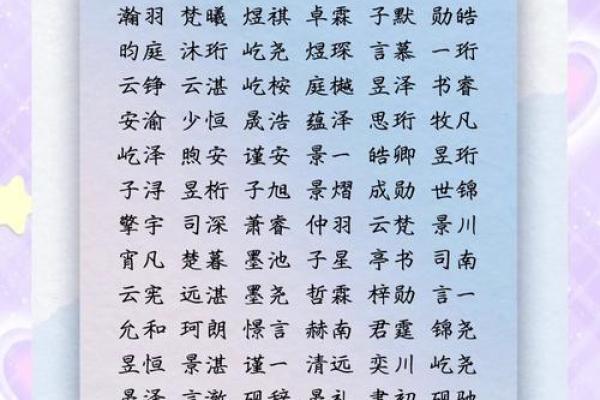 瀚羽 梵曦 煜祺 卓霖 子默 勋皓
昀庭 沐珩 屹尧 煜琛 言慕 一珩
云铮 云湛 屹桉 庭樾 昱泽 书睿
安渝 少恒 晟浩 蕴泽 思珩 牧凡
屹泽 煦安 谨安 景一 皓卿 昱珩
子浔 昱桁 子旭 景熠 成勋 世锦
擎宇 司深 萧睿 仲羽 云梵 景川
宵凡 楚暮 墨池 子星 亭书 司南
云宪 远湛 墨尧 哲霖 梓勋 言一
允和 珂朗 憬言 赫南 君霆 锦尧
昱恒 景湛 谨一 清远 奕川 屹尧
言澈 砚辞 书初 砚驰